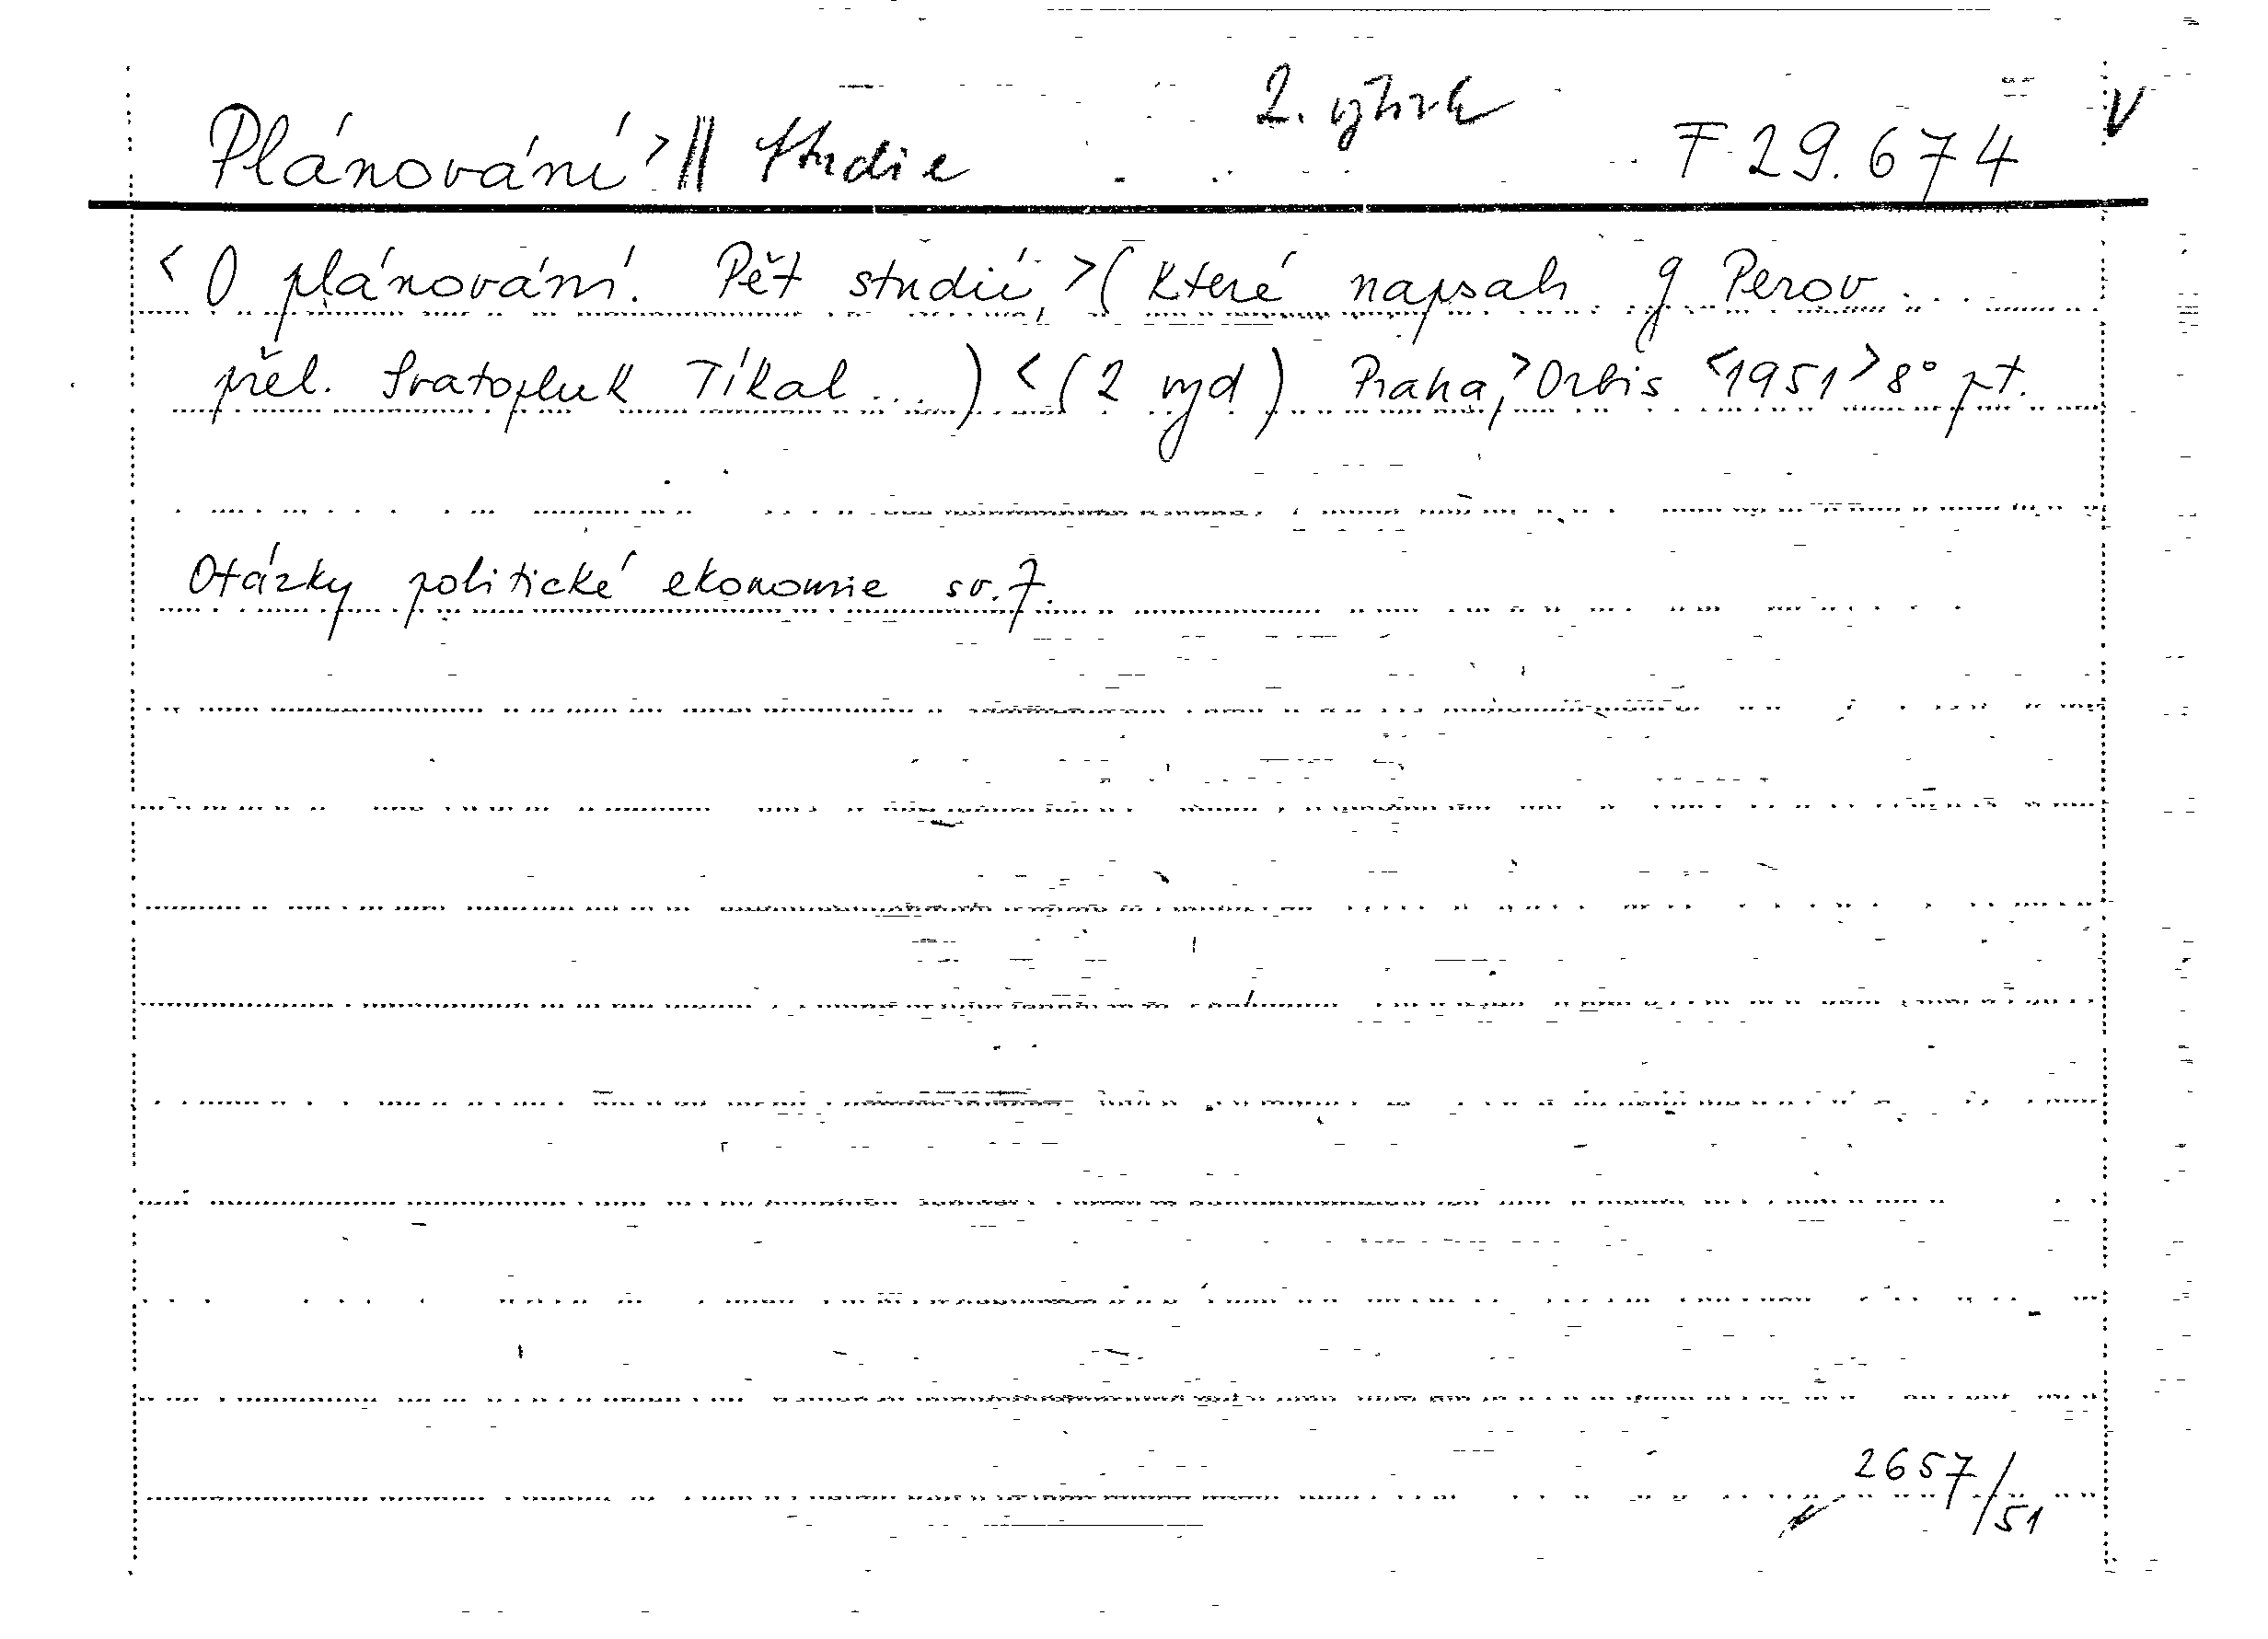 2. výtisk
Plánování> || Studie F 29.674 V
<O plánování. Pět studií,> (které napsali g Perov...
přel. Svatopluk Tíkal...) <(2 vyd) Praha,> Orbis <1951> 8° pt.
Otázky politické ekonomie sv. 7.
2657/51